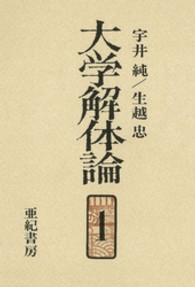 宇井 純／生越 忠
大学解体論
1
亜紀書房